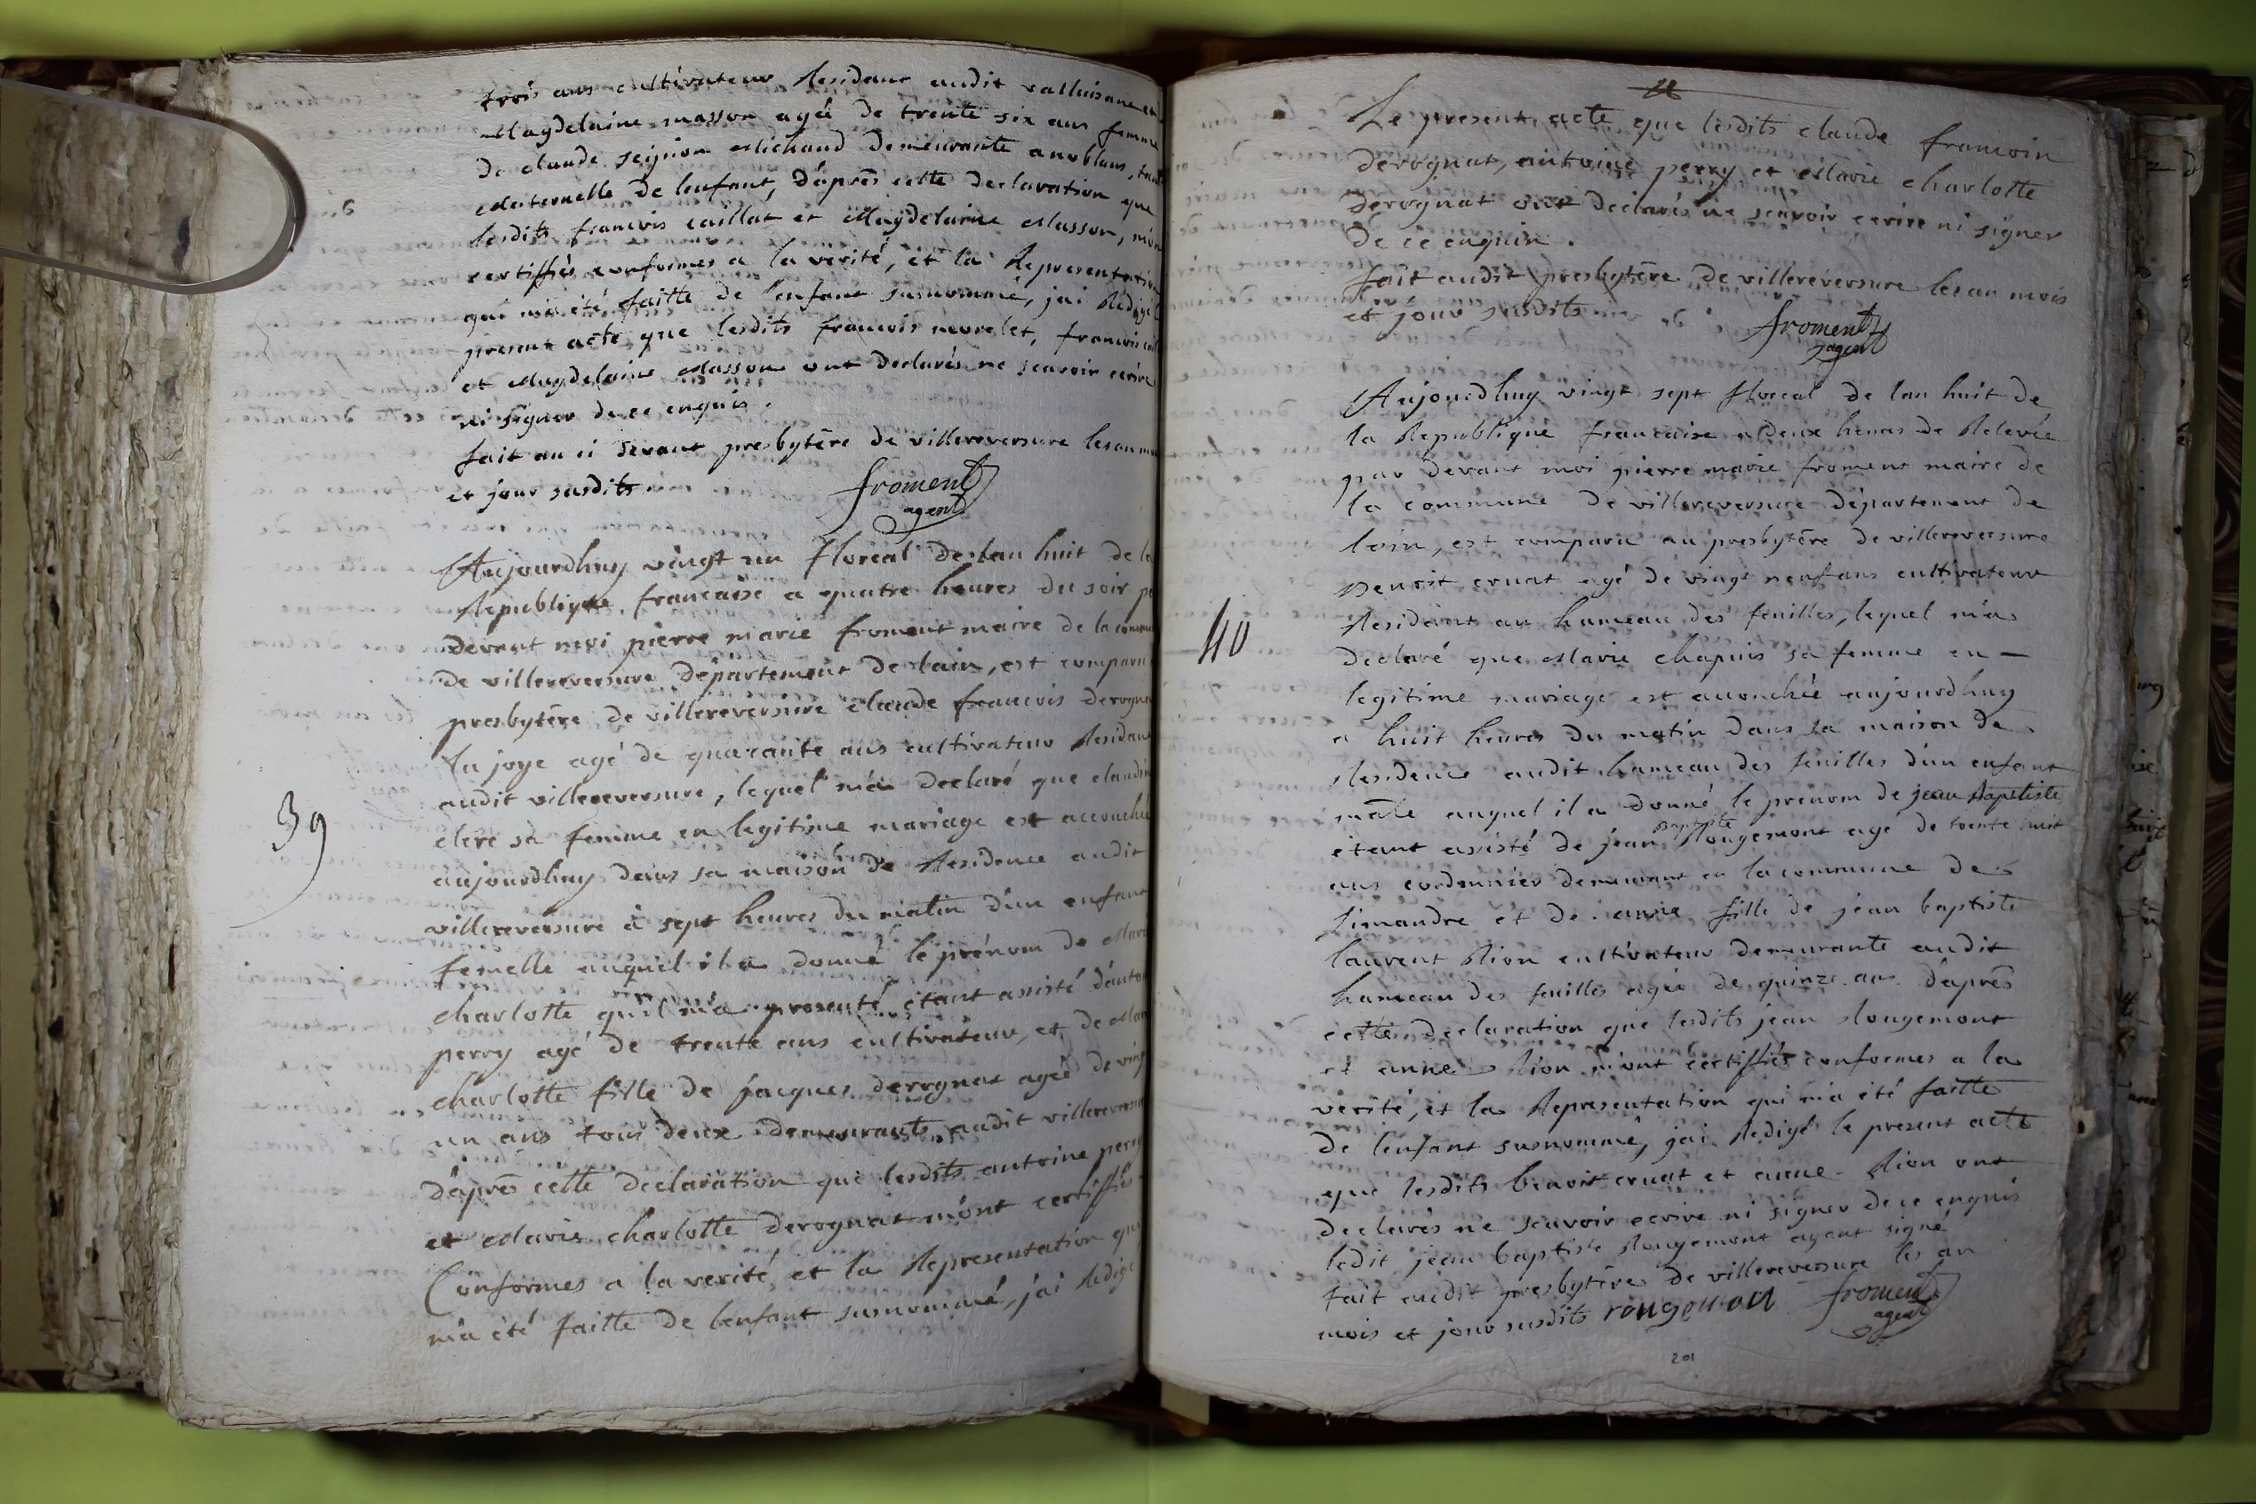 trois ans cultivateur Residant audit valluisane et
Magdelaine masson agée de trente six ans femme
de claude seignon Michaud demeurante a noblans, tante
Maternelle de lenfant, d'aprês cette declaration que
lesdits francois caillat et Magdelaine Masson, m'ont
certiffiés conformes a la verité, et la Representation
qui m'a été faitte de l'enfant susnommé, j'ai Redigé l
present acte que lesdits francois morelet, francois cail
et Magdelaine Masson ont declarés ne scavoir ecrire
ni signer de ce enquis.
fait au ci devant presbytêre de villereversure les an mois
et jour susdits
froment
agent
Aujourdhuy vingt un floréal de lan huit de la
Republique francaise a quatre heures du soir p
devant moi pierre marie froment maire de la commu
de villereversure département de lain, est comparu
presbytêre de villereversure claude francois derognat
la joye agé de quarante ans cultivateur Residant
audit villereversure, lequel m'a declaré que claudin
clerc sa femme en legitime mariage est accouchée
aujourdhuy dans sa maison de Residence audit
villereversure à sept heures du matin d'un enfant
femelle auquel il a donné le prénom de Marie
charlotte qu'il m'a presenté étant assisté d'antoi
perry agé de trente ans cultivateur, et de Marie
charlotte fille de jacques derognat agée de vingt
un ans tous deux demeurants audit villereversure
d'après cette declaration que lesdits antoine perry
et Marie charlotte derognat m'ont certiffiés
Conformes a la verité, et la Representation qui
m'a été faitte de lenfant susnommé, j'ai Redigé
39
Le present acte que lesdits claude francois
derognat, antoine perry et Marie charlotte
derognat ont declarés ne scavoir ecrire ni signer
de ce enquis.
fait audit presbytêre de villereversure les an mois
et jour susdits
froment
agent
Aujourdhuy vingt sept floreal de lan huit de
la Republique francaise a deux heures de Relevée
par devant moi pierre marie froment maire de
la commune de villereversure département de
lain, est comparu au presbytêre de villereversure
Benoit cruat agé de vingt neuf ans cultivateur
Residant au hameau des feuilles, lequel m'a
declaré que Marie chapuis sa femme en
legitime mariage est accouchée aujourdhuy
a huit heures du matin dans sa maison de
Residence audit hameau des feuilles d'un enfant
mâle auquel il a donné le prenom de jean Baptiste
étant assisté de jean Baptiste Rougemont agé de trente huit
ans cordonnier demeurant en la commune de
simandre et de anne fille de jean baptiste
laurent Rion cultivateur demeurante audit
hameau des feuilles agée de quinze ans d'aprês
cette declaration que lesdits jean Rougemont
et anne Rion m'ont certiffiés conformes a la
verité, et la Representation qui m'a été faitte
de l'enfant susnommé, j'ai Redigé le present acte
que lesdits benoit cruat et anne Rion ont
declarés ne scavoir ecrire ni signer de ce enquis
ledit jean baptiste Rougemont ayant signé
fait audit presbytêre de villereversure les an
mois et jour susdits rougemon froment
agent
40
201